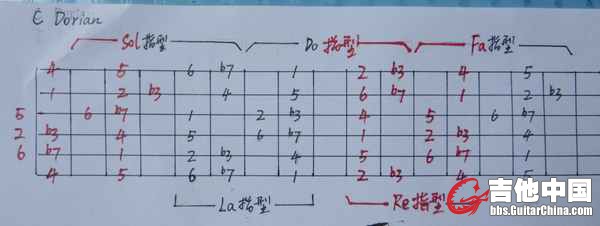 C Dorian
Sol指型 Do指型 Fa指型
4 5 6 b7 1 2 b3 4 5
1 2 b3 4 5 6 b7 1 2 b3
5 6 b7 1 2 b3 4 5 6 b7
2 b3 4 5 6 b7 1 2 b3 4
6 b7 1 2 b3 4 5 6 b7 1
4 5 6 b7 1 2 b3 4 5
La指型 Re指型
吉他中国
bbs.GuitarChina.com